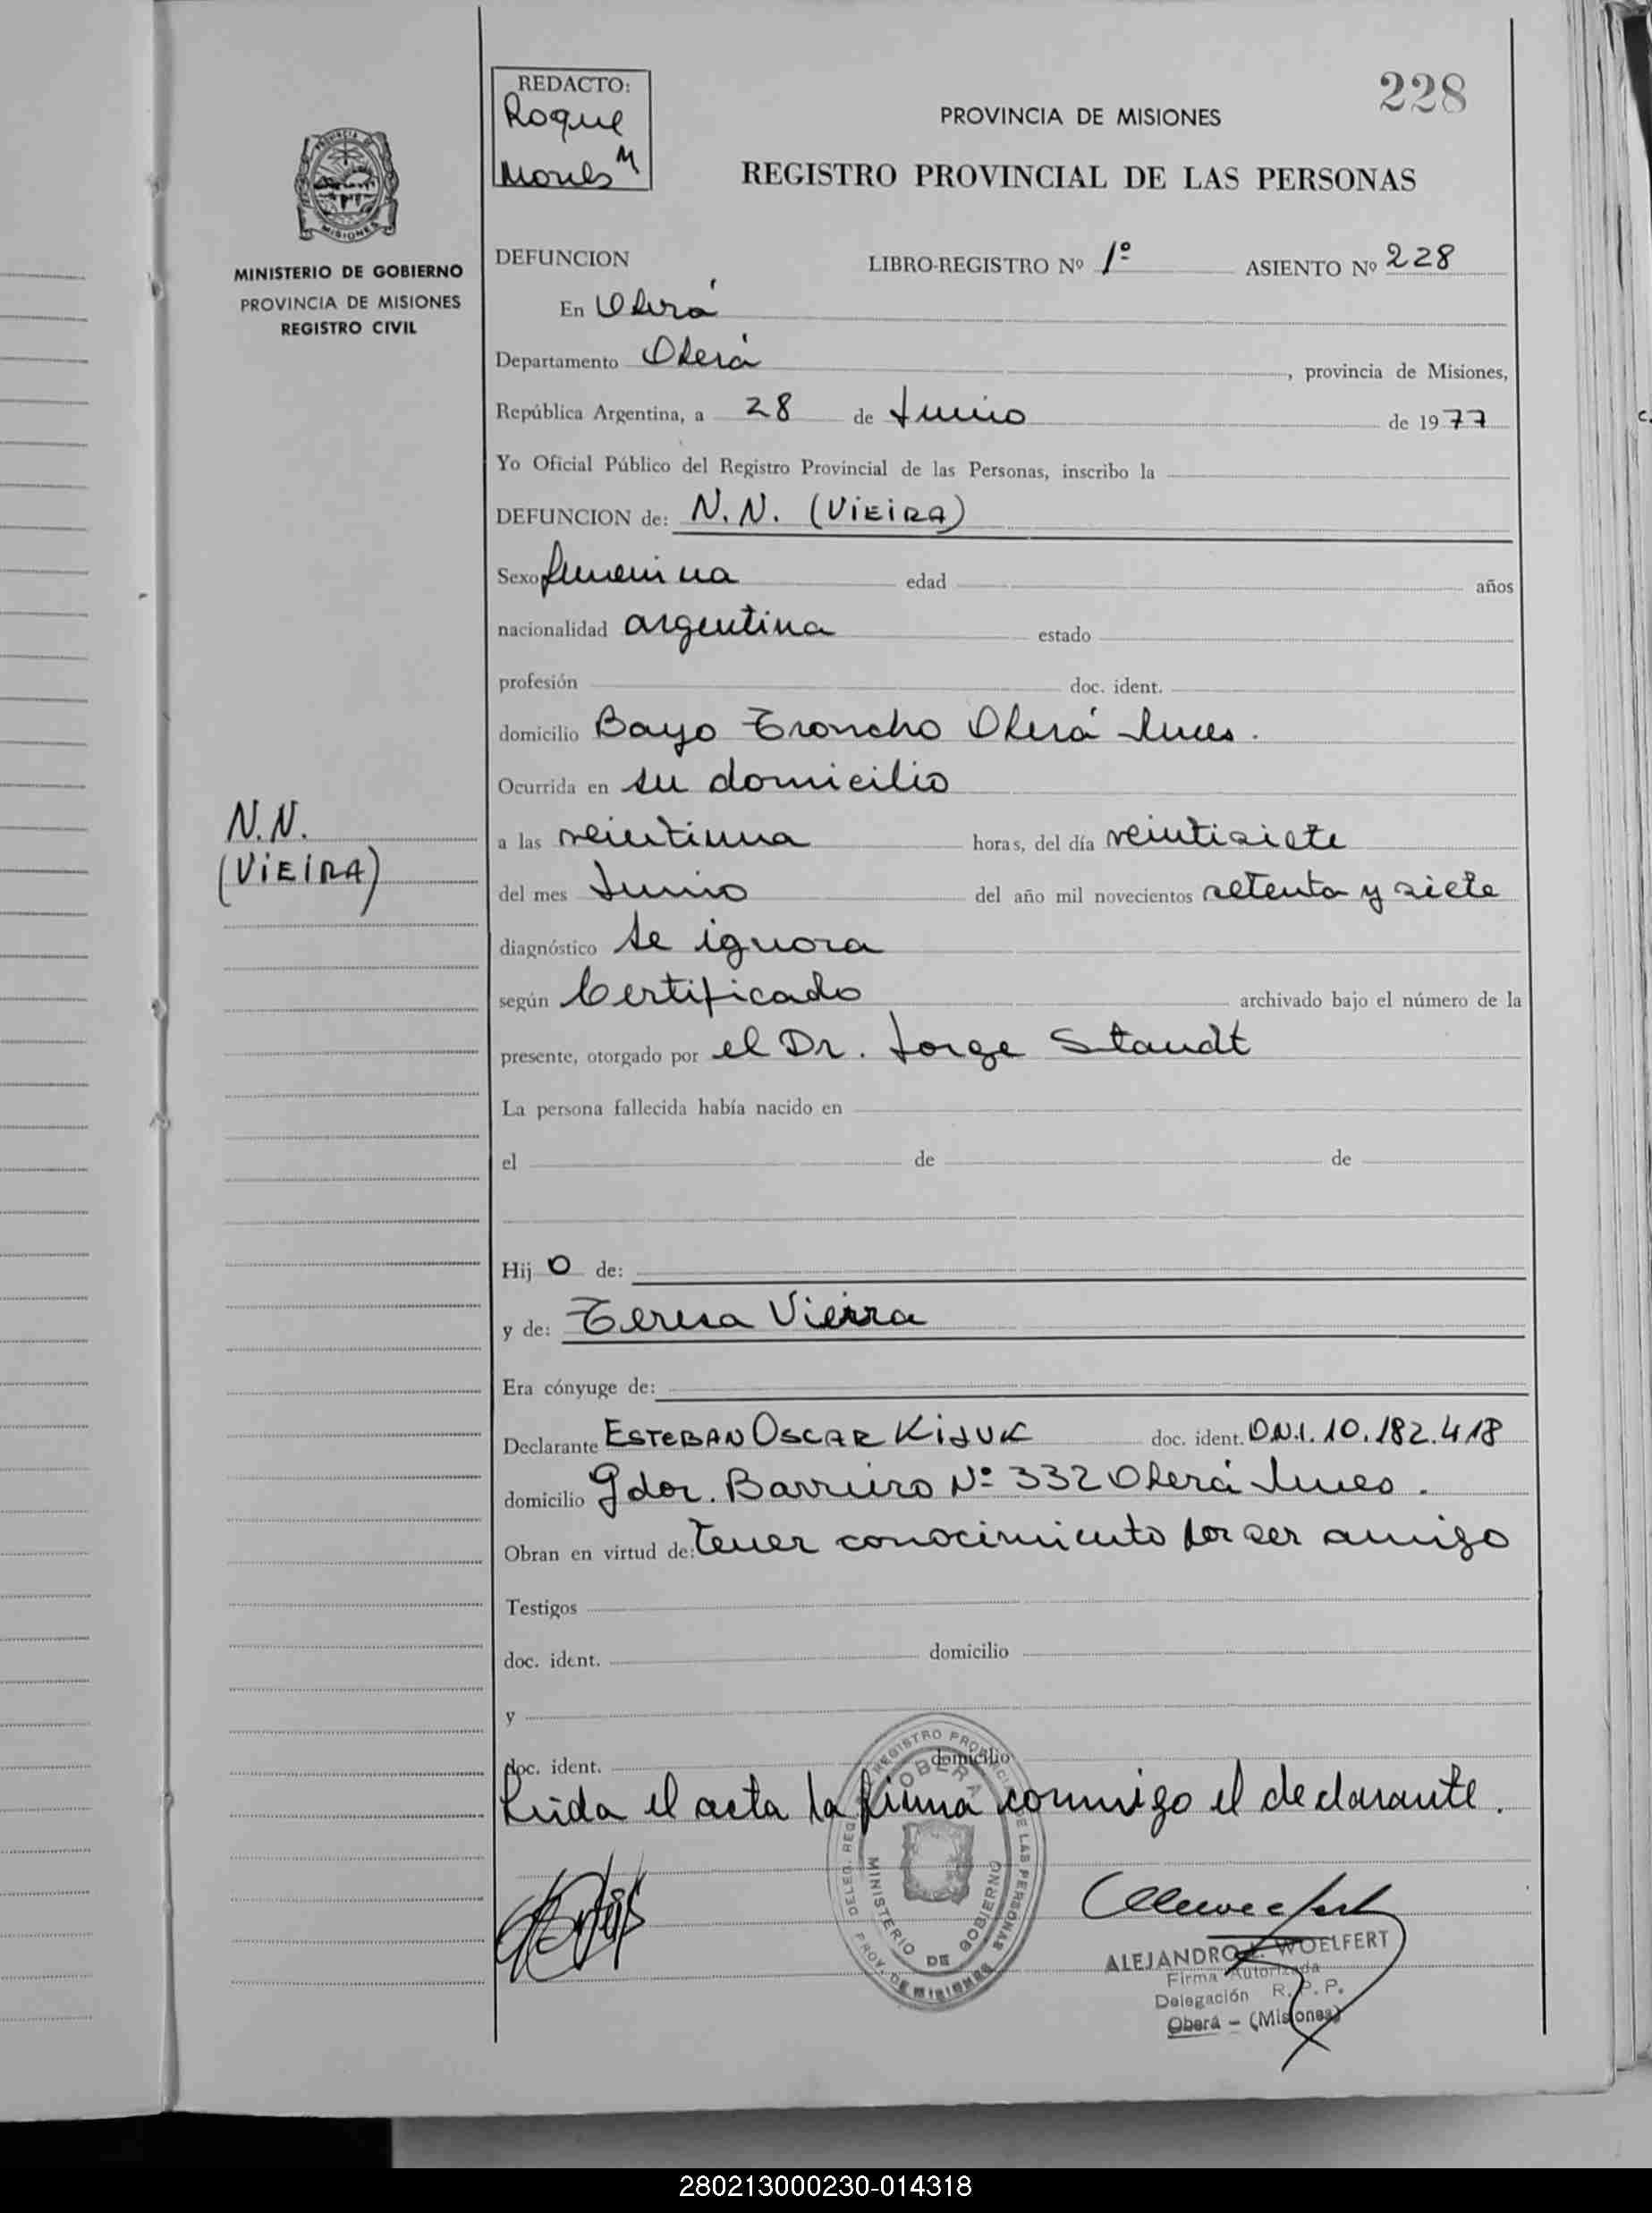 228
REDACTO:
Roque
M
PROVINCIA DE MISIONES
REGISTRO PROVINCIAL DE LAS PERSONAS
PROVINCIA DE
MISIONES
MINISTERIO DE GOBIERNO
PROVINCIA DE MISIONES
REGISTRO CIVIL
DEFUNCION LIBRO-REGISTRO Nº 1º ASIENTO Nº 228
En Oberá
Departamento Oberá, provincia de Misiones,
República Argentina, a 28 de Junio de 1977
Yo Oficial Público del Registro Provincial de las Personas, inscribo la
DEFUNCION de: N.N. (ViEiRA)
Sexo femenina edad años
nacionalidad argentina estado
profesión doc. ident.
domicilio Bayo Troncho Oberá Mnes.
Ocurrida en su domicilio
N.N.
(ViEiRA)
a las veintiuna horas, del día veintisiete
del mes Junio del año mil novecientos setenta y siete
diagnóstico se ignora
según Certificado archivado bajo el número de la
presente, otorgado por el Dr. Jorge Staudt
La persona fallecida había nacido en
el de de
Hij o de:
y de: Teresa Vieira
Era cónyuge de:
Declarante ESTEBAN OSCAR KiJUK doc. ident. D.N.I. 10.182.418
domicilio Gdor. Barreiro Nº 332 Oberá Mnes.
Obran en virtud de: tener conocimiento por ser amigo
Testigos
doc. ident. domicilio
y
doc. ident. domicilio
Leida el acta la firma conmigo el declarante.
DELEG. REG REGISTRO PROVINCIAL DE LAS PERSONAS
OBERA
MINISTERIO DE GOBIERNO
PROV. DE MISIONES
ALEJANDRO WOELFERT
Firma Autorizada
Delegación R. P. P.
Oberá - (Misiones)
280213000230-014318